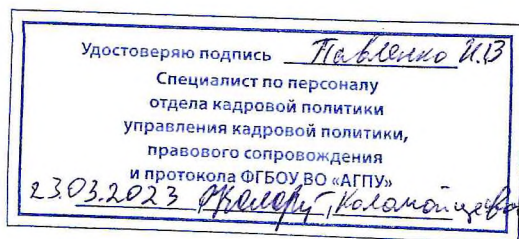 Удостоверяю подпись Павленко И.В
Специалист по персоналу
отдела кадровой политики
управления кадровой политики,
правового сопровождения
и протокола ФГБОУ ВО «АГПУ»
23.03.2023 Коломойцева